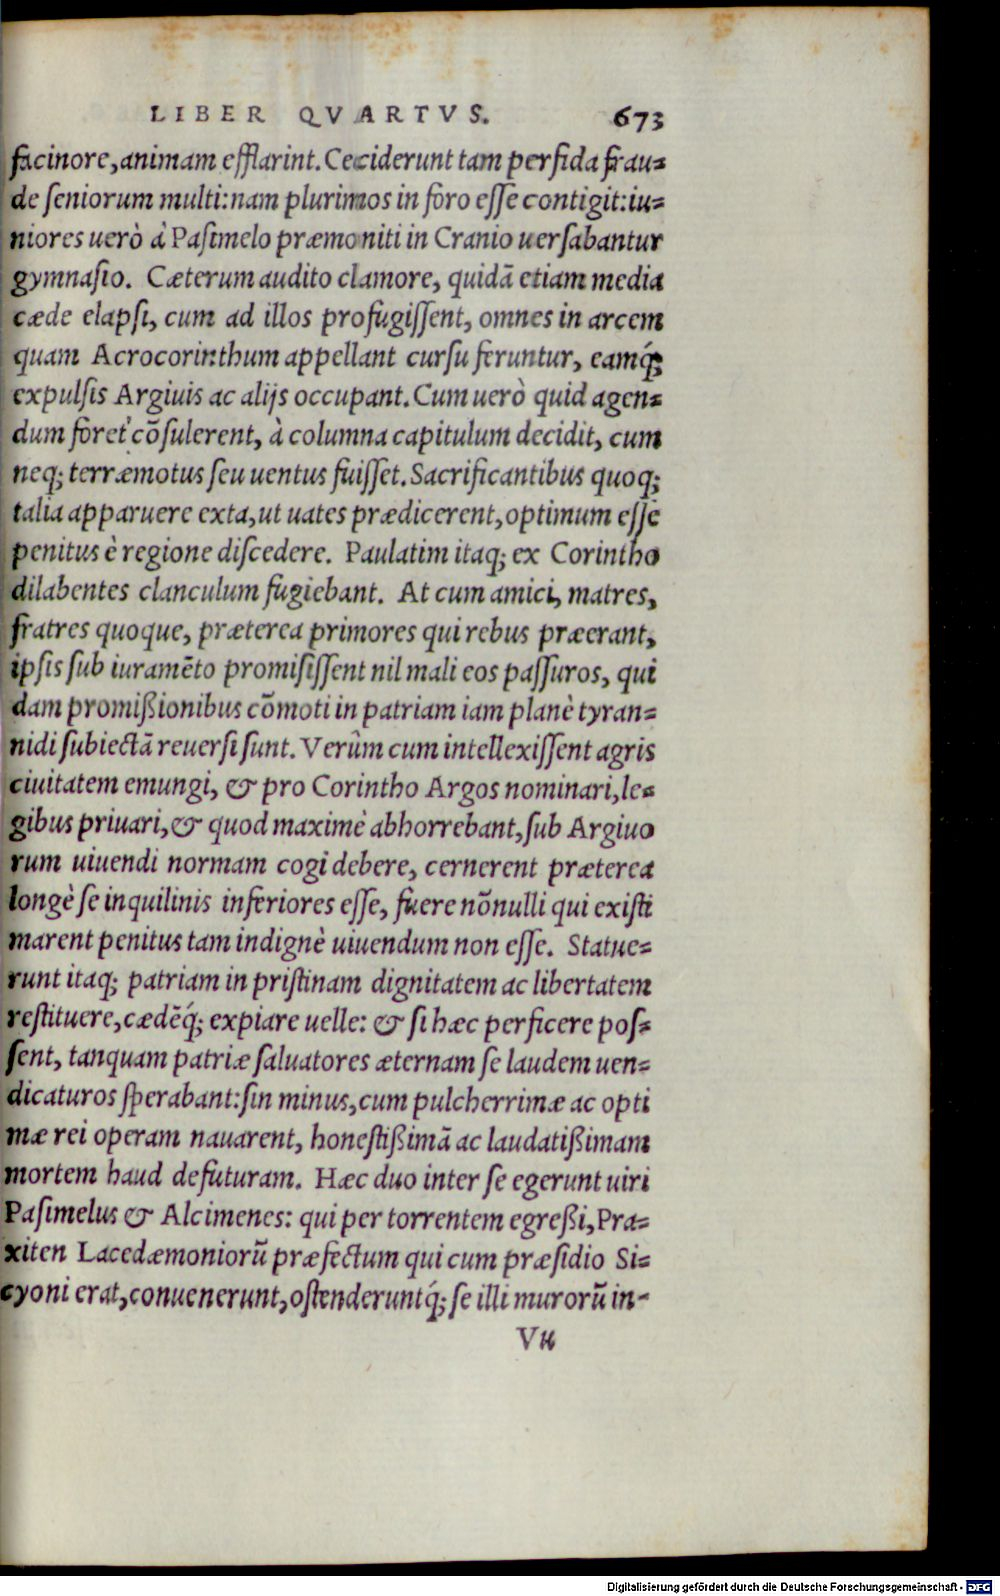 LIBER QVARTVS. 673
facinore, animam efflarint. Ceciderunt tam perfida frau-
de seniorum multi: nam plurimos in foro esse contigit: iu-
niores uerò à Pasimelo præmoniti in Cranio uersabantur
gymnasio. Cæterum audito clamore, quidā etiam media
cæde elapsi, cum ad illos profugissent, omnes in arcem
quam Acrocorinthum appellant cursu feruntur, eamq́;
expulsis Argiuis ac alijs occupant. Cum uerò quid agen-
dum foret cōsulerent, à columna capitulum decidit, cum
neq; terræmotus seu uentus fuisset. Sacrificantibus quoq;
talia apparuere exta, ut uates prædicerent, optimum esse
penitus è regione discedere. Paulatim itaq; ex Corintho
dilabentes clanculum fugiebant. At cum amici, matres,
fratres quoque, præterea primores qui rebus præerant,
ipsis sub iuramēto promisissent nil mali eos passuros, qui
dam promißionibus cōmoti in patriam iam planè tyran-
nidi subiectā reuersi sunt. Verùm cum intellexissent agris
ciuitatem emungi, & pro Corintho Argos nominari, le-
gibus priuari, & quod maximè abhorrebant, sub Argiuo
rum uiuendi normam cogi debere, cernerent præterea
longè se inquilinis inferiores esse, fuere nōnulli qui existi
marent penitus tam indignè uiuendum non esse. Statue-
runt itaq; patriam in pristinam dignitatem ac libertatem
restituere, cædēq́; expiare uelle: & si hæc perficere pos-
sent, tanquam patriæ saluatores æternam se laudem uen-
dicaturos sperabant: sin minus, cum pulcherrimæ ac opti
mæ rei operam nauarent, honestißimā ac laudatißimam
mortem haud defuturam. Hæc duo inter se egerunt uiri
Pasimelus & Alcimenes: qui per torrentem egreßi, Pra-
xiten Lacedæmoniorū præfectum qui cum præsidio Si-
cyoni erat, conuenerunt, ostenderuntq́; se illi murorū in-
Vu
Digitalisierung gefördert durch die Deutsche Forschungsgemeinschaft - DFG